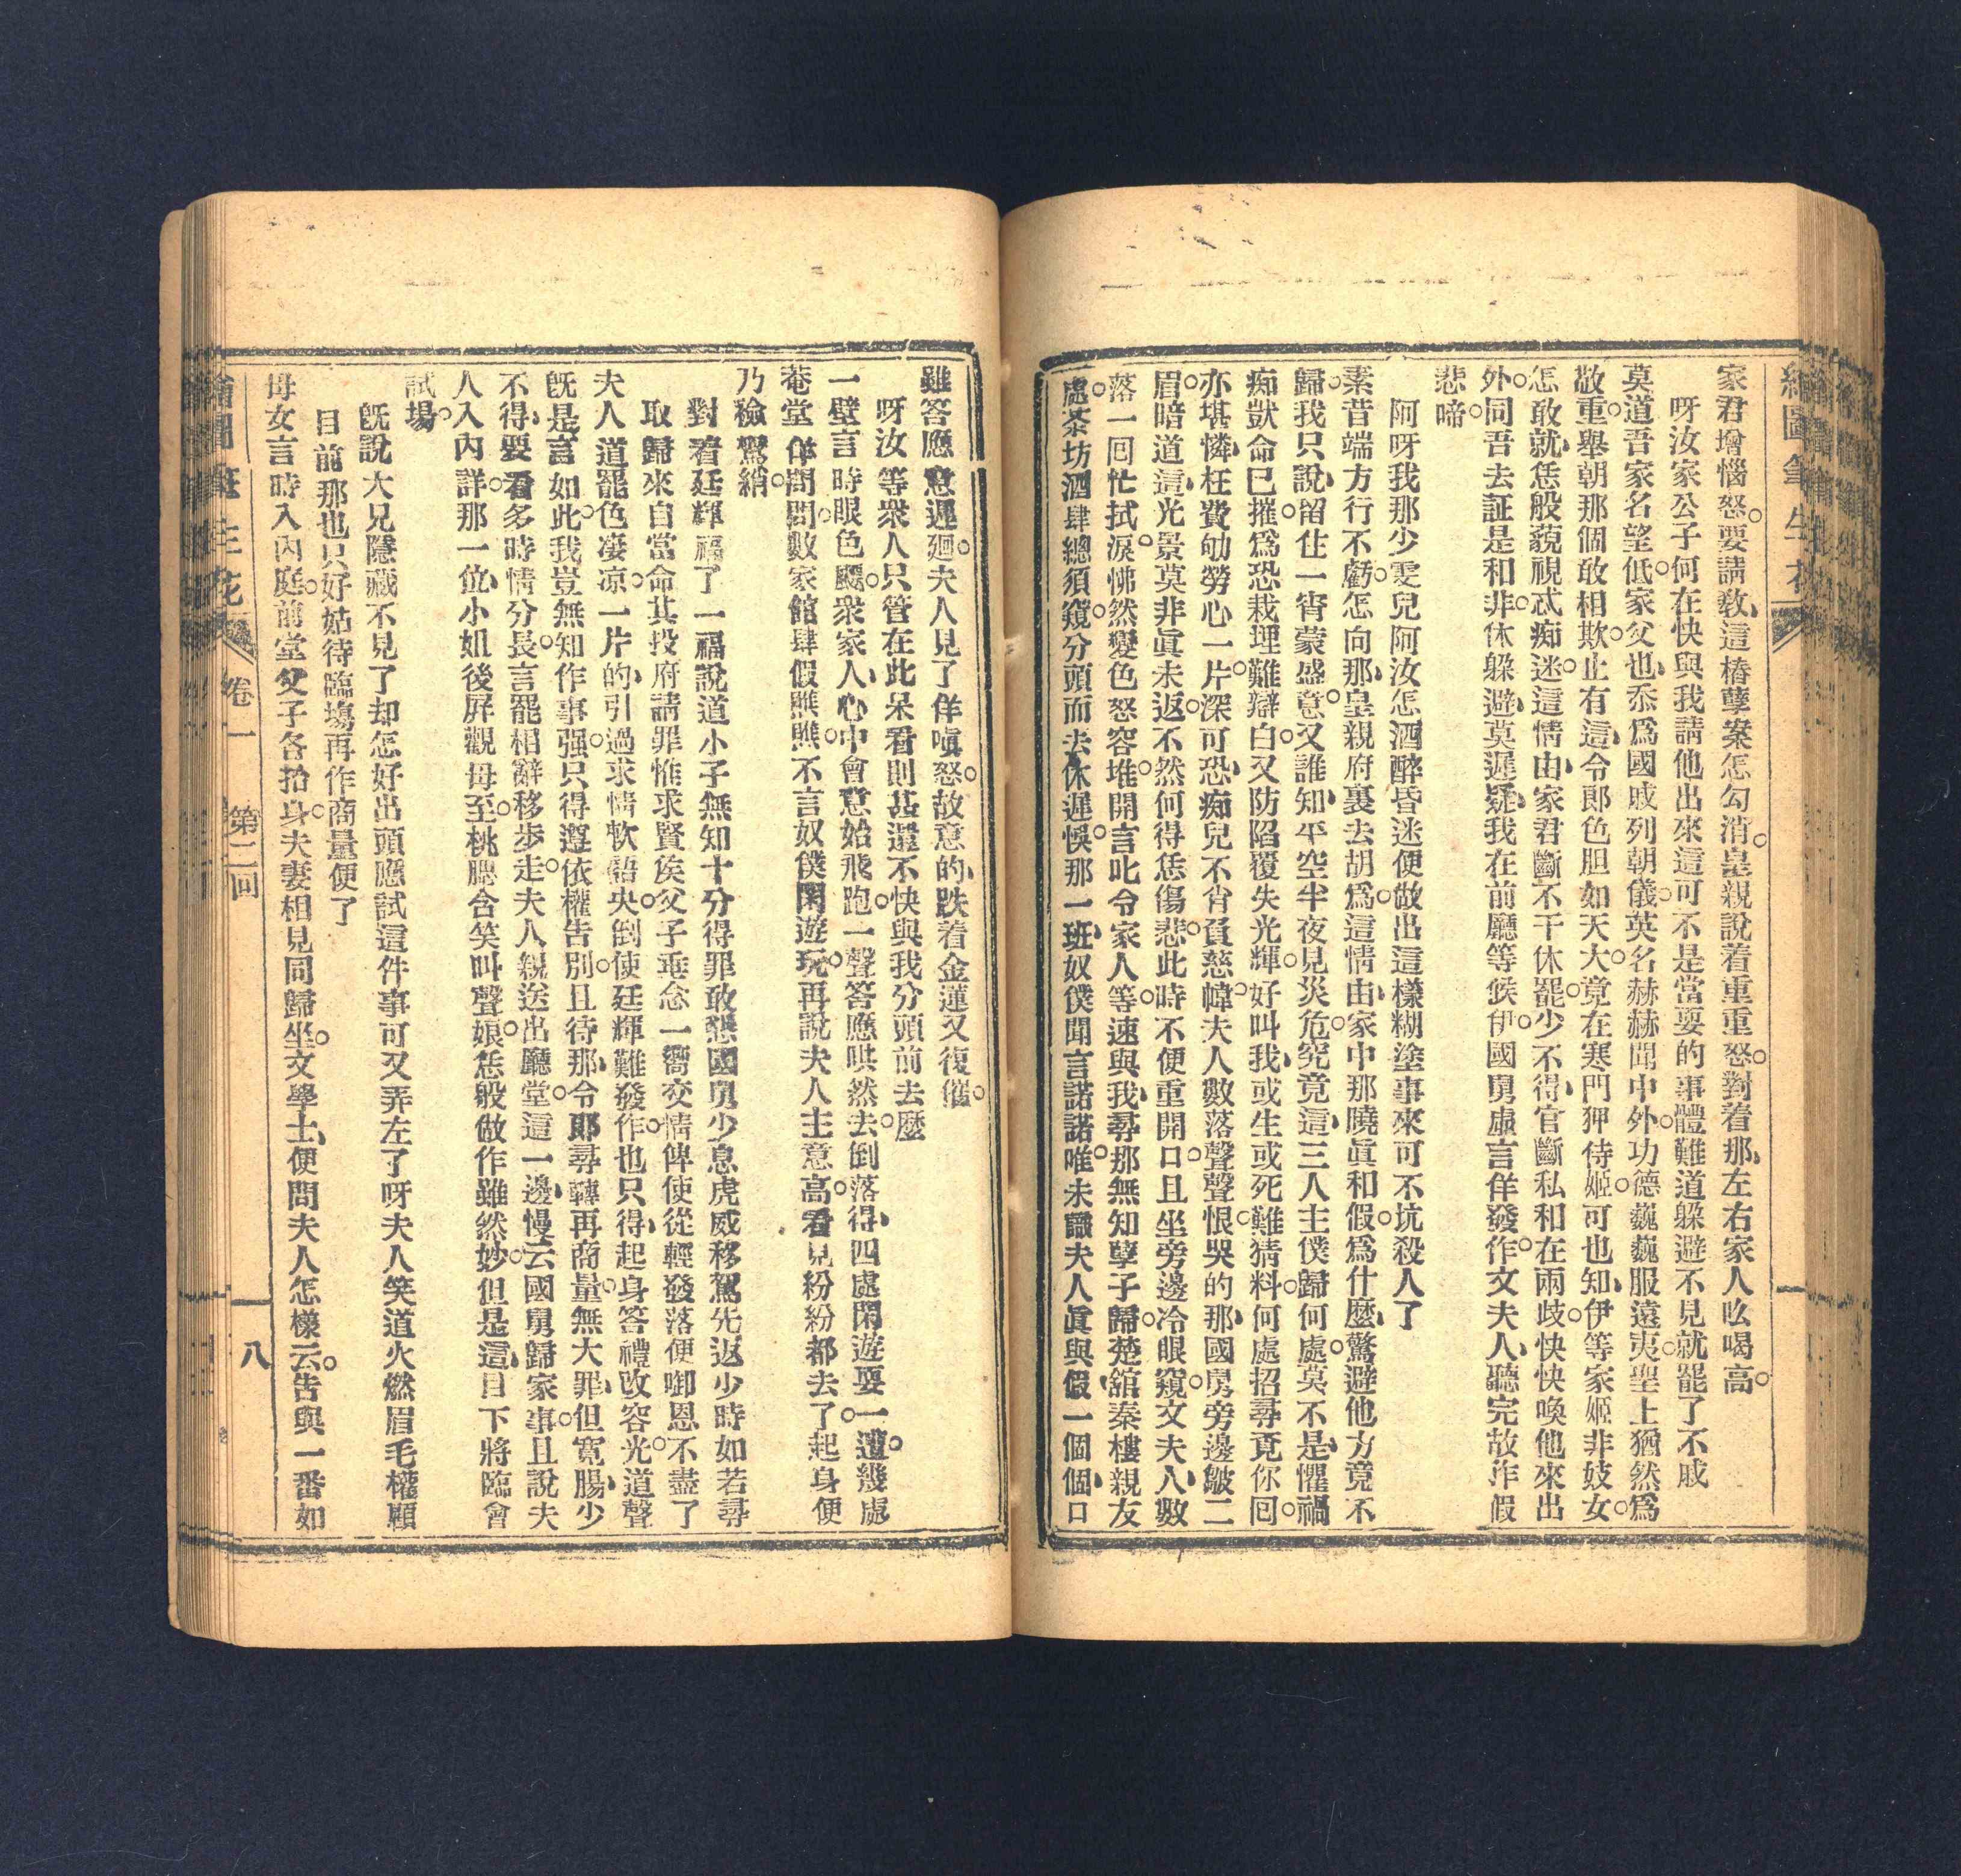 繪圖筆生花
家君增惱怒要請敎這樁孽案怎勾消皇親說着重重怒對着那左右家人吆喝高
呀汝家公子何在快與我請他出來這可不是當耍的事體難道躲避不見就罷了不成
莫道吾家名望低家父也忝爲國戚列朝儀英名赫赫聞中外功德巍巍服遠夷聖上猶然爲
敬重舉朝那個敢相欺止有這令郎色胆如天大竟在寒門狎侍姬可也知伊等家姬非妓女
怎敢就恁般藐視忒痴迷這情由家君斷不干休罷少不得官斷私和在兩歧快快喚他來出
外同吾去証是和非休躲避莫遲疑我在前廳等候伊國舅虛言佯發作文夫人聽完故作假
悲啼
阿呀我那少雯兒阿汝怎酒醉昏迷便做出這樣糊塗事來可不坑殺人了
素昔端方行不虧怎向那皇親府裏去胡爲這情由家中那曉眞和假爲什麼驚避他方竟不
歸我只說留住一宵蒙盛意又誰知平空半夜見災危究竟這三人主僕歸何處莫不是懼禍
痴獃命已摧爲恐栽埋難辯白又防陷覆失光輝好叫我或生或死難猜料何處招尋竟你回
亦堪憐枉費劬勞心一片深可恐痴兒不肖負慈幃夫人數落聲聲恨哭的那國舅旁邊皺二
眉暗道這光景莫非眞未返不然何得恁傷悲此時不便重開口且坐旁邊冷眼窺文夫人數
落一回忙拭淚怫然變色怒容堆開言叱令家人等速與我尋那無知孽子歸楚舘秦樓親友
處茶坊酒肆總須窺分頭而去休遲悞那一班奴僕聞言諾諾唯未識夫人眞與假一個個口
雖答應意遲廻夫人見了佯嗔怒故意的跌着金蓮又復催
呀汝等衆人只管在此呆看則甚還不快與我分頭前去麼
一壁言時眼色颺衆家人心中會意始飛跑一聲答應哄然去倒落得四處閑遊耍一遭幾處
菴堂佯問問數家館肆假瞧瞧不言奴僕閑遊玩再說夫人主意高看見紛紛都去了起身便
乃檢鸞綃
對着廷輝福了一福說道小子無知十分得罪敢懇國舅少息虎威移駕先返少時如若尋
取歸來自當命其投府請罪惟求賢侯父子垂念一嚮交情俾使從輕發落便啣恩不盡了
夫人道罷色凄凉一片的引過求情軟語央倒使廷輝難發作也只得起身答禮改容光道聲
旣是言如此我豈無知作事强只得遵依權告別且待那令郎尋轉再商量無大罪但寬腸少
不得要看多時情分長言罷相辭移步走夫人親送出廳堂這一邊慢云國舅歸家事且說夫
人入內詳那一位小姐後屏觀母至桃腮含笑叫聲娘恁般做作雖然妙但是這目下將臨會
試場
旣說大兄隱藏不見了却怎好出頭應試這件事可又弄左了呀夫人笑道火燃眉毛權顧
目前那也只好姑待臨場再作商量便了
母女言時入內庭前堂父子各抬身夫妻相見同歸坐文學士便問夫人怎樣云告與一番如
繪圖筆生花
卷一
第二回
八